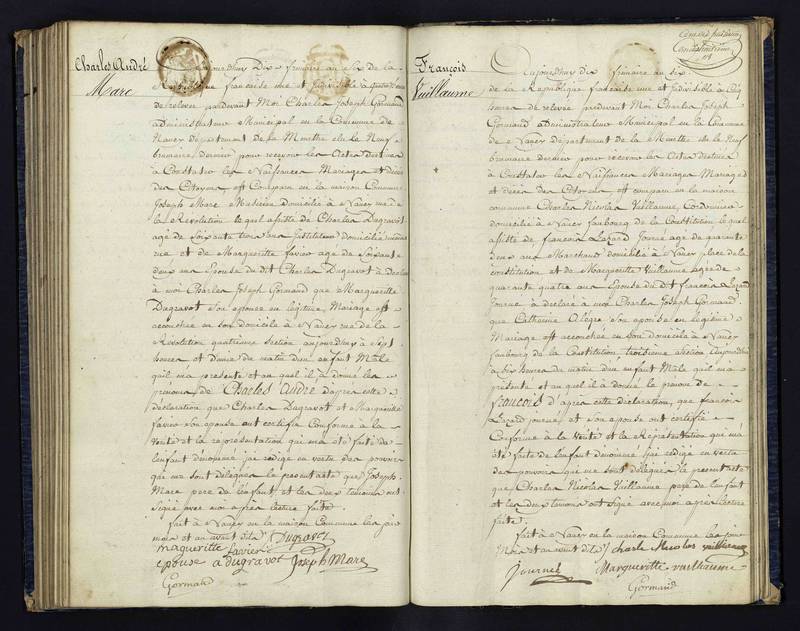 Charles André
Marc
aujourdhuy Dix frimaire an six de la
Republique francaise une et Indivisible à quatre heures
de relevée pardevant Moi Charles Joseph Gormand
administrateur Municipal en la Commune de
Nancy Département de la Meurthe elu le Neuf
brumaire dernier pour recevoir les Actes destinés
à Constater les Naissances Mariages et décès
des Citoyens est Comparu en la maison Commune
Joseph Marc Musicien Domicilié à Nancy rue de
la Révolution lequel assisté de Charles Dugravot
agé de Soixante trois ans Instituteur domicilié même
rue et de Margueritte favier agée de Soixante
deux ans Epouse du dit Charles Dugravot à déclaré
à moi Charles Joseph Gormand que Marguerite
Dugravot Son épouse en légitime Mariage est
accouchée en son domicile à Nancy rue de la
Révolution quatrieme section aujourdhuy à Sept
heures et demie du matin d'un enfant Mâle
qu'il m'a présenté et au quel il à donné les
prénoms de Charles André d'après cette
déclaration que Charles Dugravot et Marguerite
favier son épouse ont certifié Conforme à la
Vérité et la représentation qui m'a été faite de
l'enfant dénommé j'ai rédigé en vertu des pouvoirs
qui me sont délégués le present acte que Joseph
Marc pere de l'enfant et les deux temoins ont
Signé avec moi après lecture faite
fait à Nancy en la maison Commune les jour
mois et an avant dits / Dugravot
Margueritte favier
epouse a dugravot Joseph Marc
Gormand
François
Vuillaume
Aujourdhuy dix frimaire an six
de la République francaise une et Indivisible à Cinq
heures de relevée pardevant Moi Charles Joseph
Gormand administrateur Municipal en la Commune
de Nancy département de la Meurthe elu le Neuf
brumaire dernier pour recevoir les Actes destinés
à Constater les Naissances Mariages
et décès des Citoyens est comparu en la maison
commune Charles Nicolas Vuillaume, Cordonnier
domicilié à Nancy faubourg de la Constitution lequel
assisté de françois Lazard Journé agé de quarante
deux ans Marchand domicilié à Nancy place de la
constitution et de Marguerite Vuillaume agée de
quarante quatre ans Epouse du dit françois Lazard
Journé à déclaré à moi Charles Joseph Gormand
que Catherine Alegre Son épouse en légitime
Mariage est accouchée en Son domicile à Nancy
faubourg de la Constitution troisieme section aujourdhuy
à Six heures du matin d'un enfant Mâle qu'il m'a
présenté et au quel il à donné le prenom de
françois d'après cette déclaration, que françois
Lazard journé et Son épouse ont certifié
Conforme à la Vérité et la Réprésentation qui m'a
été faite de l'enfant dénommé j'ai rédigé en vertu
des pouvoirs qui me sont délégués le présent acte
que Charles Nicolas Vuillaume pere de l'enfant
et les deux temoins ont Signé avec moi après lecture
faite.
fait à Nancy en la maison Commune les jour
Mois et an avant dits / charle Nicolas vuillaume
Journé Margueritte vuillaume
Gormand